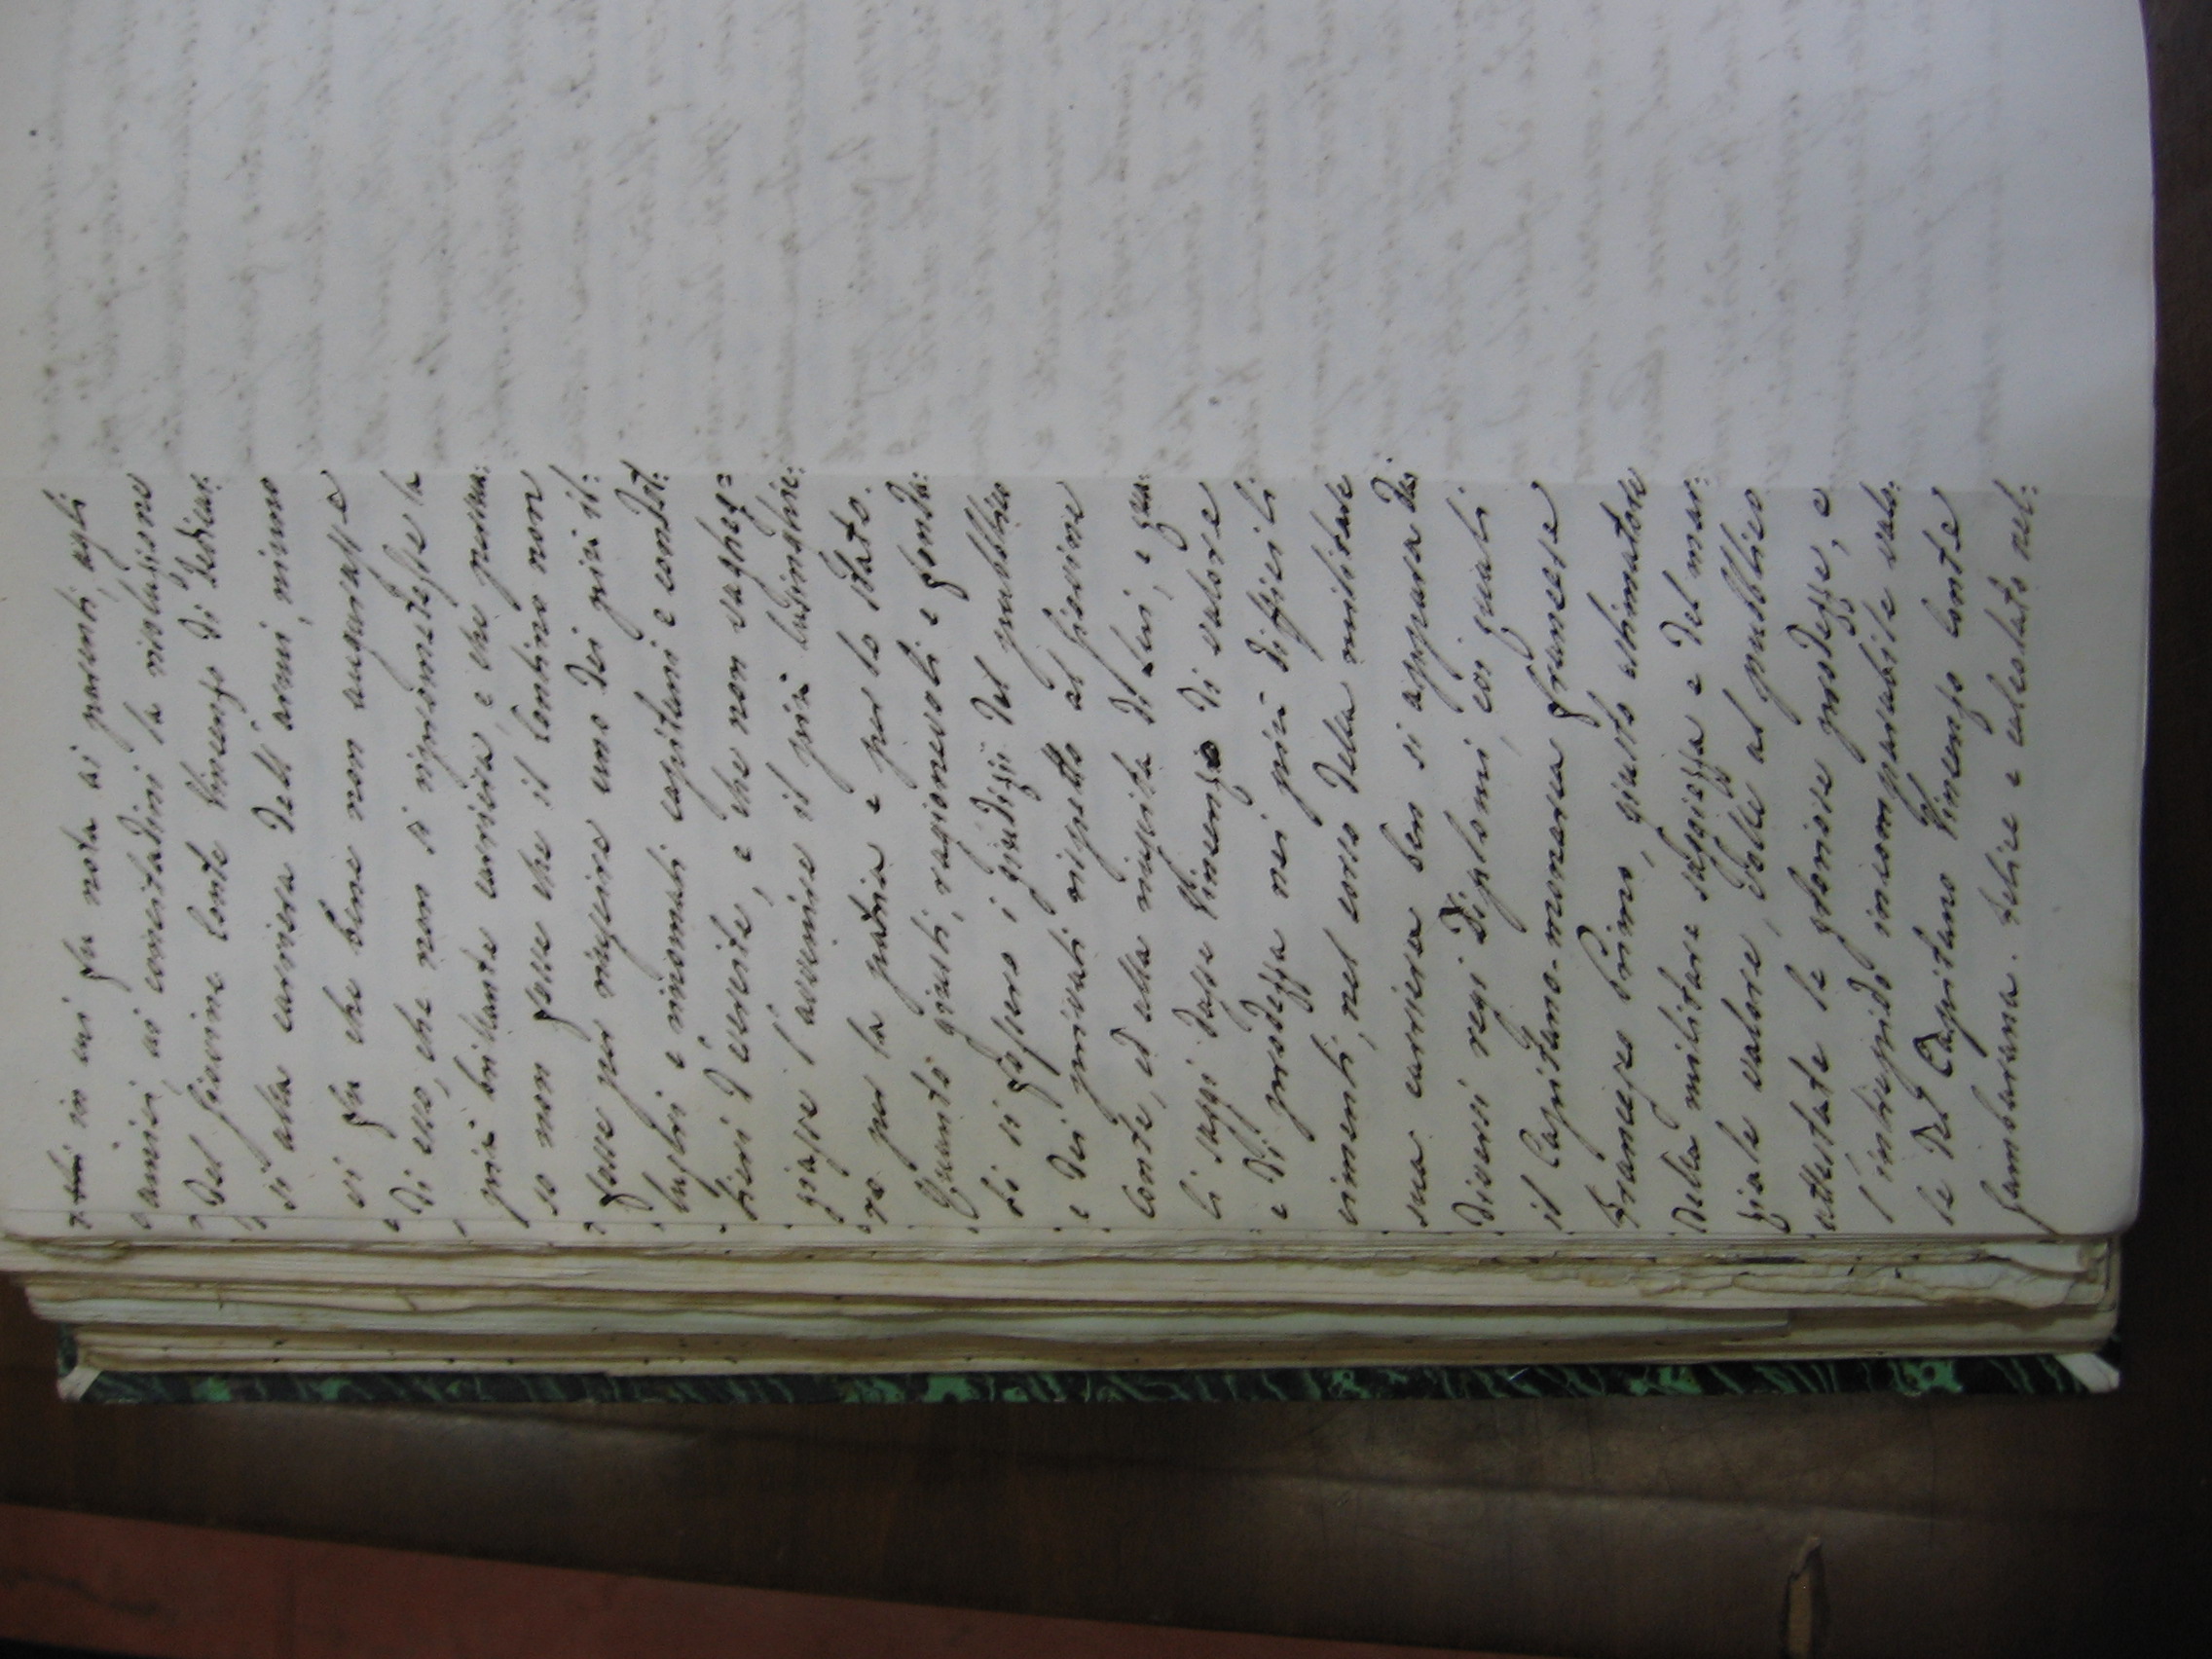 in cui fu nota ai parenti, agli
amici, ai concittadini la risoluzione
del giovine Conte Vincenzo di dedicar:
si alla carriera dell'armi, niuno
vi fu che bene non augurasse
di esso, che non si ripromettesse la
più brillante carriera, e che persua:
so non fosse che il Contino non
fosse per riuscire uno dei più il:
lustri e rinomati capitani e condot:
tieri d'esercito, e che non vagheg=
giasse l'avvenire il più lusinghie:
ro per la patria e per lo stato.
Quanto giusti, ragionevoli e fonda:
ti si fossero i giudizii del pubblico
e dei privati rispetto al giovine
Conte, ed alla riuscita di lui, e qua:
li saggi dasse Vincenzo di valore
e di prodezza nei più difficili
cimenti, nel corso della militare
sua carriera ben si appara da
diversi regi Diplomi, coi quali
il Capitano-monarca francese
Francesco Primo, giusto estimatore
della militare saggezza e del mar:
ziale valore, volle al pubblico
attestate le gloriose prodezze, e
l'intrepido incomparabile valo:
re del Capitano Vincenzo Conte
Gambarana. Felice e celebrato nel: